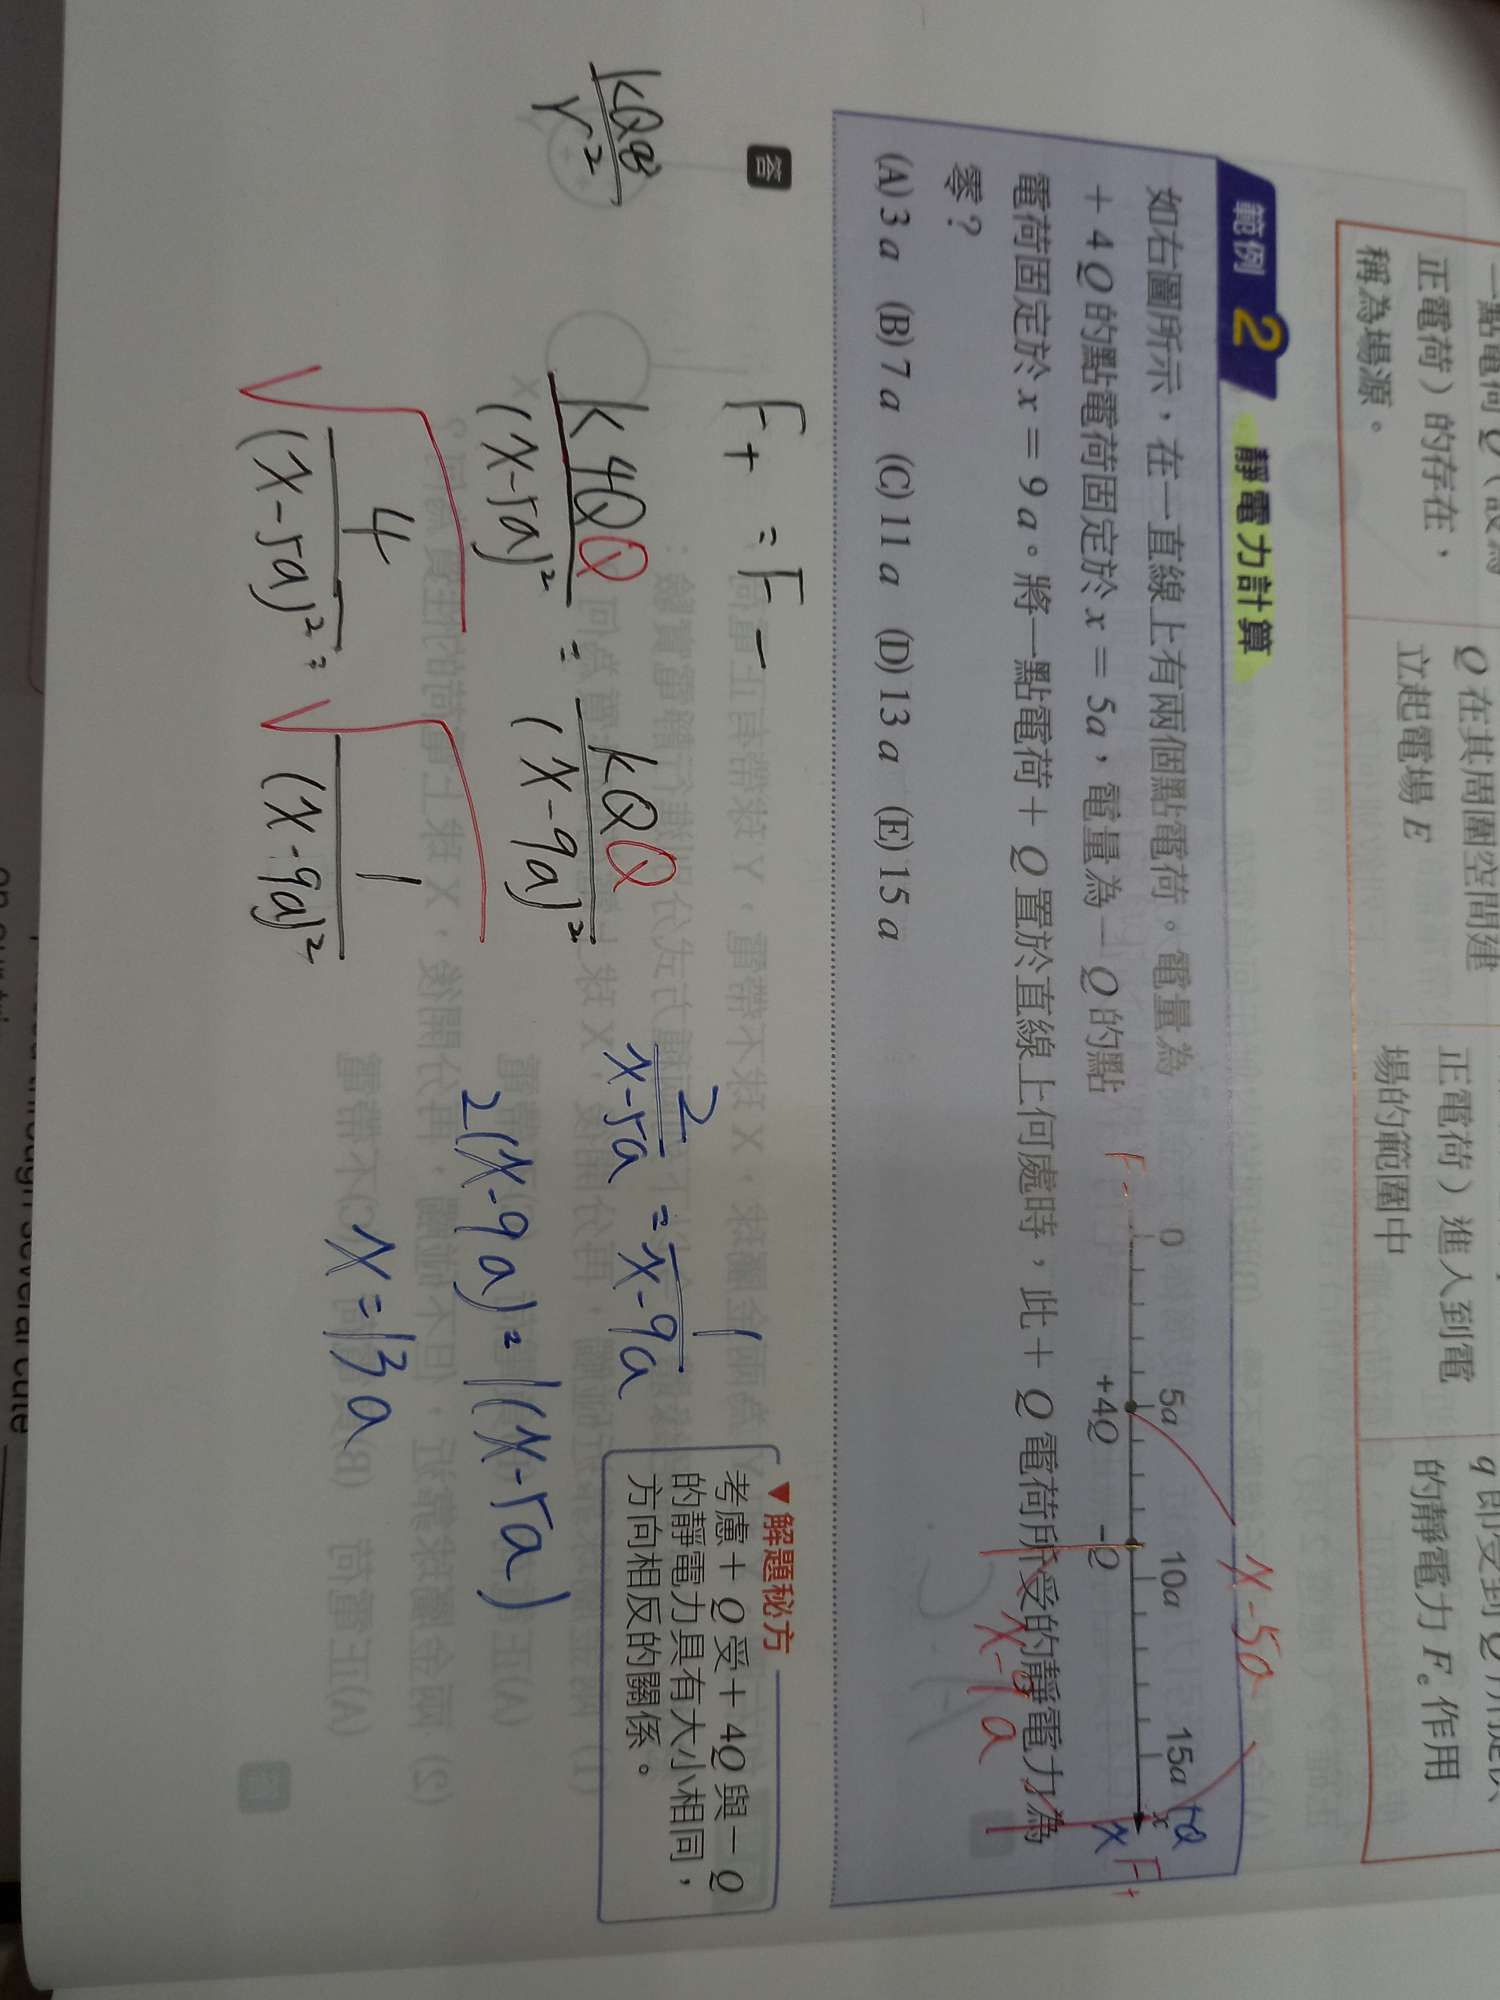 一點電荷 Q（設為
正電荷）的存在，
稱為場源。
Q 在其周圍空間建
立起電場 E
正電荷）進入到電
場的範圍中
的靜電力 Fe 作用
範例 2 靜電力計算
如右圖所示，在一直線上有兩個點電荷。電量為
＋4Q 的點電荷固定於 x＝5a，電量為－Q 的點
電荷固定於 x＝9a。將一點電荷＋Q 置於直線上何處時，此＋Q 電荷所受的靜電力為
零？
(A) 3a (B) 7a (C) 11a (D) 13a (E) 15a
x-5a
0 5a 10a 15a x
+4Q -Q
+Q
x
F-
F+
x-9a
答
kQq/r²
F+ = F-
k4QQ/(x-5a)² = kQQ/(x-9a)²
√4/(x-5a)² = √1/(x-9a)²
2/x-5a = 1/x-9a
2(x-9a) = 1(x-5a)
x=13a
▼解題秘方
考慮＋Q 受＋4Q 與－Q
的靜電力具有大小相同，
方向相反的關係。